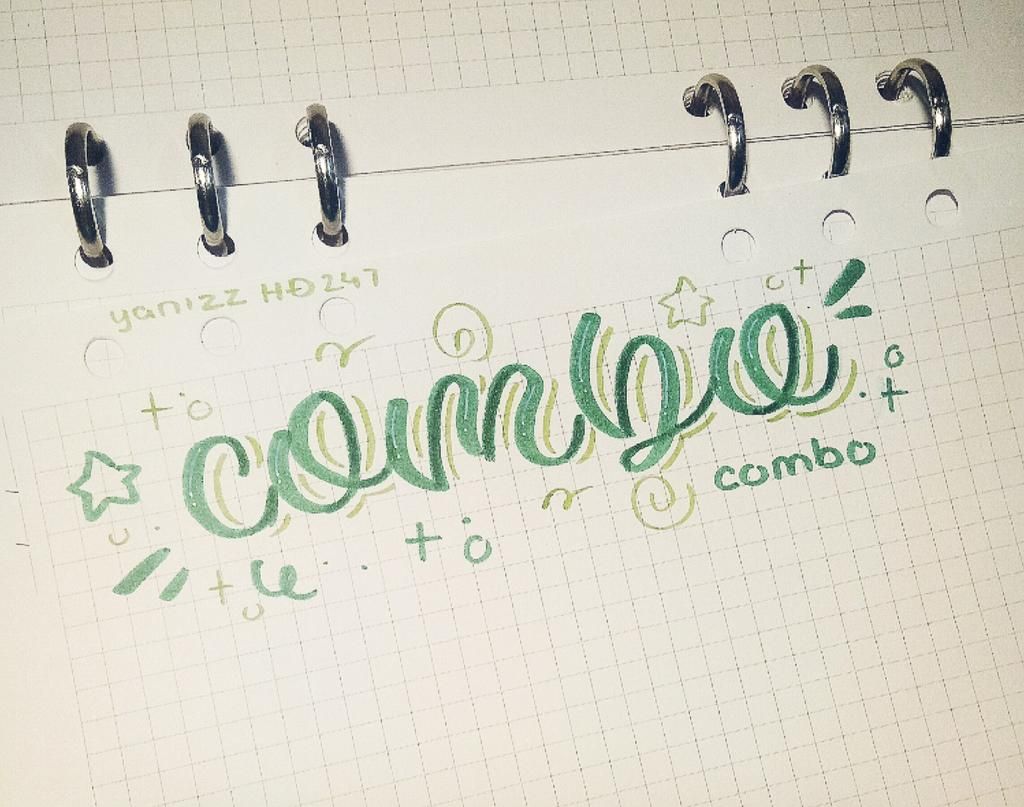 yanizz HD247
combo
combo